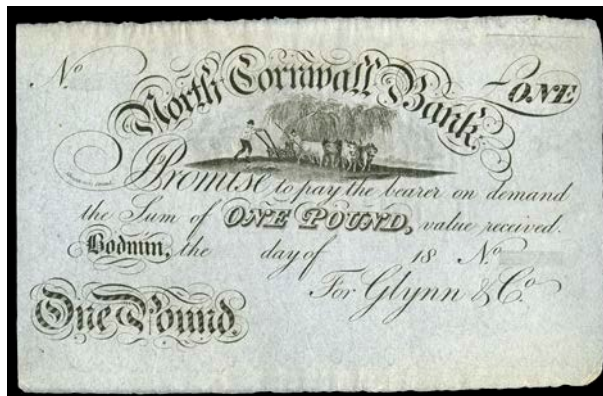 No
£ONE
North Cornwall Bank.
Promise to pay the bearer on demand
the Sum of ONE POUND, value received.
Bodmin, the day of 18 No
For Glynn & Co
One Pound.